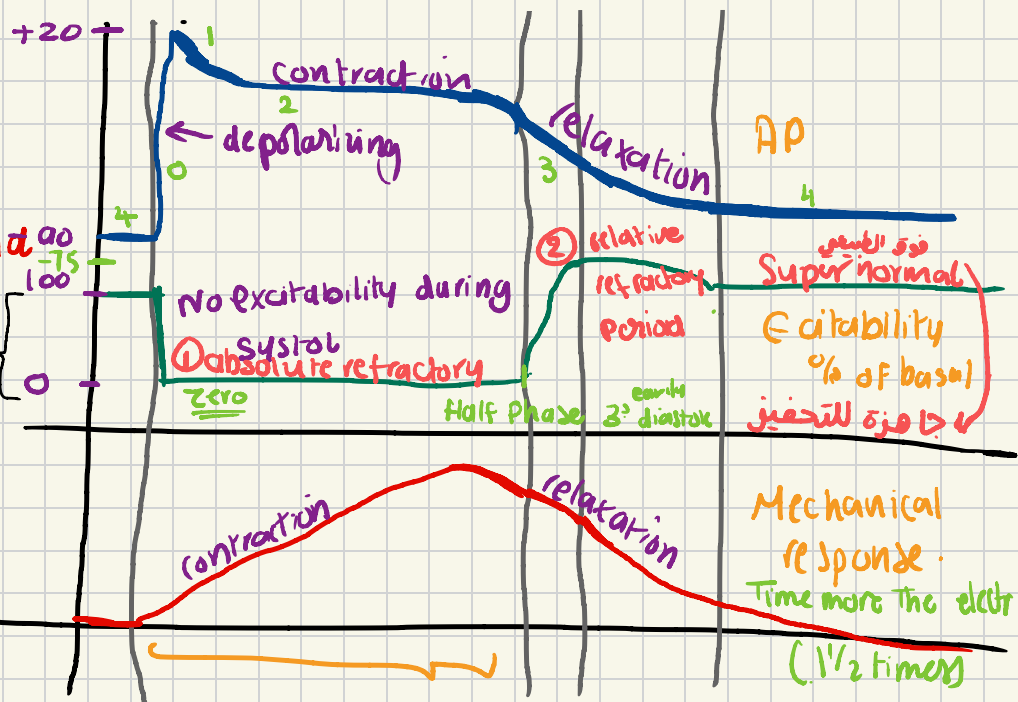 +20
1
contraction
2
← depolarizing
0
relaxation
3
AP
4
4
90
-75
100
0
No excitability during
systol
① absolute refractory
zero
② relative
refractory
period
فوق الطبيعي
Super normal
Half Phase 3
early
diastole
% of basal
جاهزة للتحفيز
contraction
relaxation
Mechanical
response.
Time more the electr
(1 1/2 times)